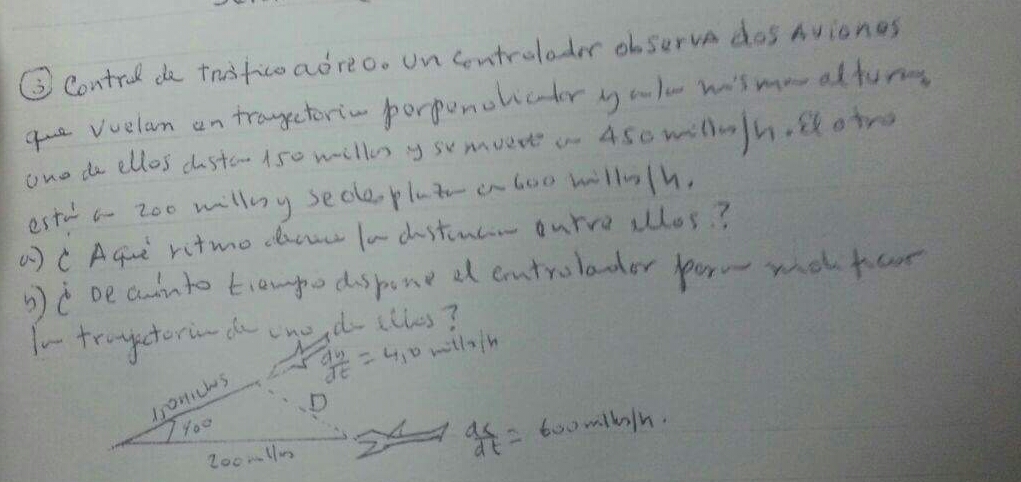 ③ Control de tráfico aéreo. Un controlador observa dos Aviones
que vuelan en trayectoria perpendicular y a la misma altura,
uno de ellos dista 150 millas y se mueve a 450 millas/h. El otro
está a 200 millas y se desplaza a 600 millas/h.
a) ¿ A qué ritmo decrece la distancia entre ellos?
b) ¿ De cuánto tiempo dispone el controlador para modificar
la trayectoria de uno de ellos?
dy/dt = millas/h
millas
D
200 millas
ds/dt = 600 millas/h.